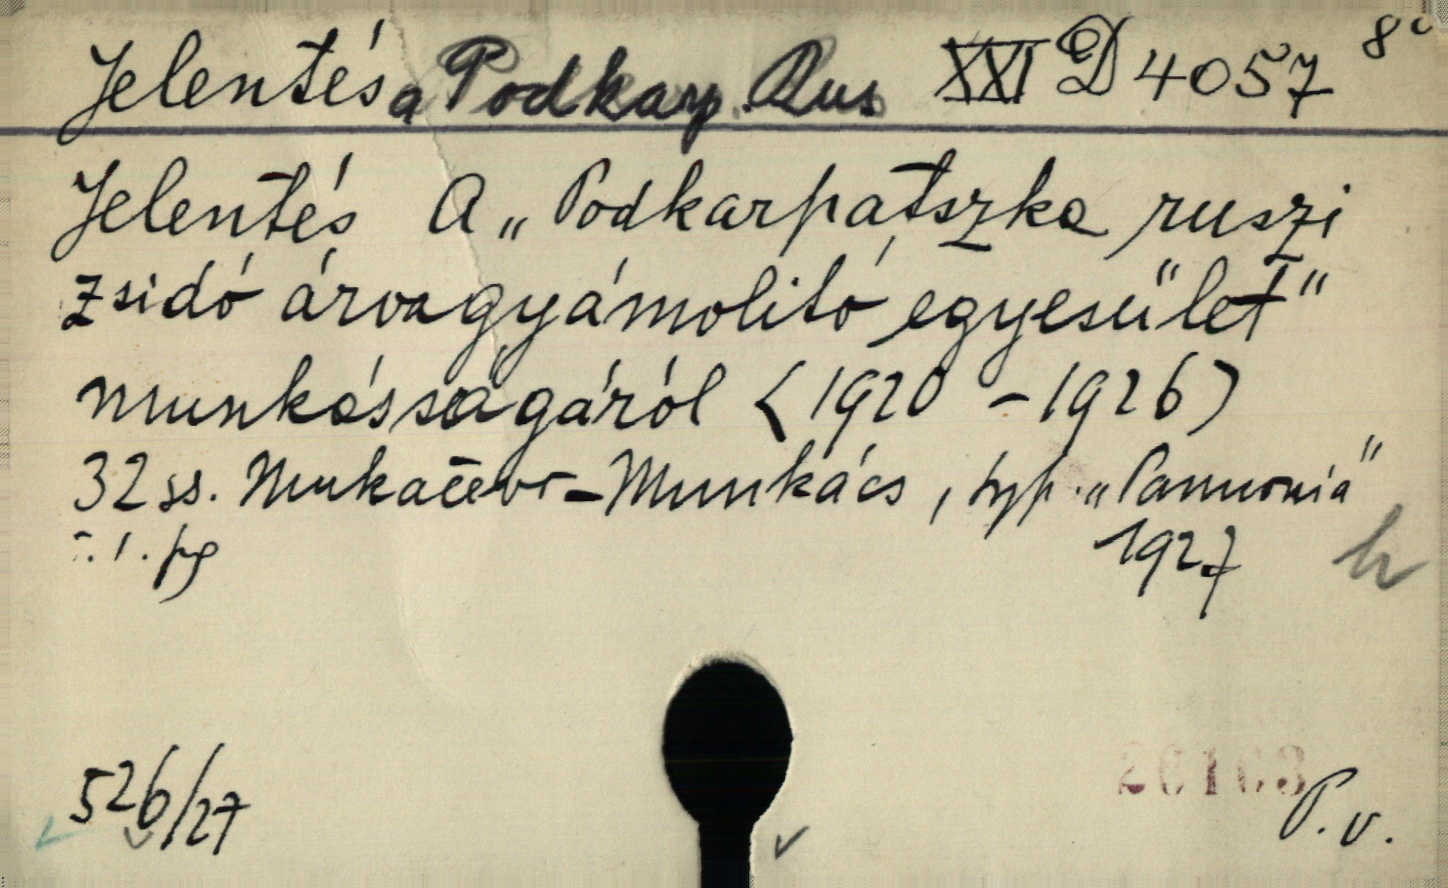 Jelentés a Podkarp. Rus XXI D 4057 8°
Jelentés A „Podkarpatszka ruszi
zsidó árvagyámolitó egyesület"
munkásságáról (1920-1926)
32 ss. Mukačevo-Munkács, typ. „Pannonia"
1927
526/27
P. v.